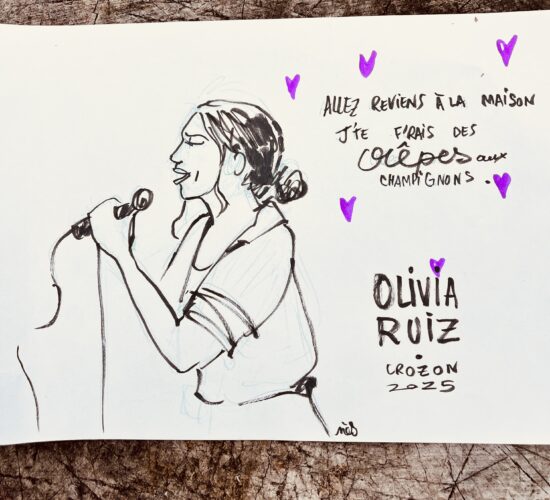 ALLEZ REVIENS À LA MAISON
J'TE F'RAIS DES
CRÊPES aux
CHAMPIGNONS.
OLIVIA
RUIZ
CROZON
2025